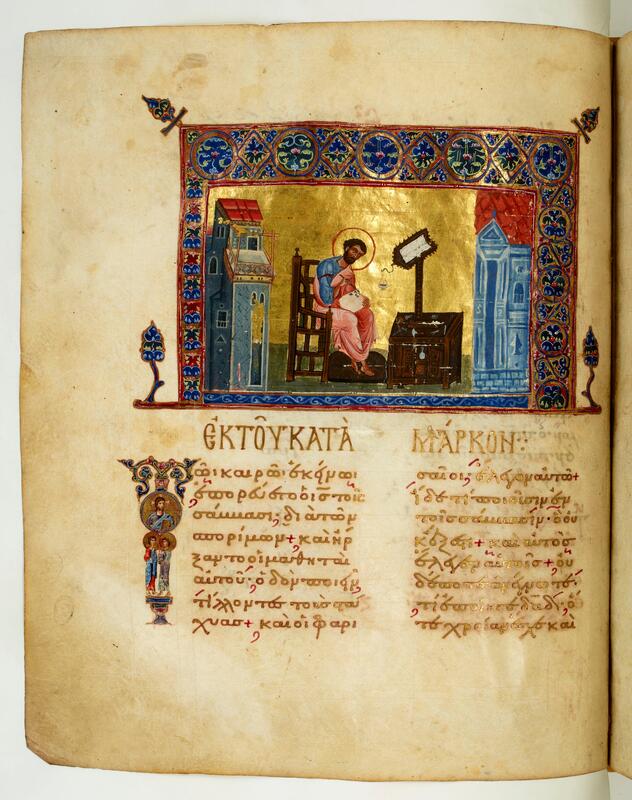 ἘΚ ΤΟῦ ΚΑΤᾺ ΜΆΡΚΟΝ:
Τῶι καιρῶι ἐκείνωι
ἐπορεύετο ὁ ι̅ς̅ τοῖς
σάββασι· διὰ τῶν
σπορίμων+ καὶ ἤρ
ξαντο οἱ μαθηταὶ
αὐτοῦ· ὁδὸν ποιεῖν,
τίλλοντες τοὺς στά
χυας+ καὶ οἱ φαρι
σαῖοι, ἔλεγον αὐτῶ+
ἴδε τί ποιοῦσιν ἐν
τοῖς σάββασιν· ὃ οὐ
κ ἔξεστι+ καὶ αὐτὸς
ἔλεγεν αὐτοῖς+ οὐ
δέποτε ἀνέγνωτε·
τί ἐποίησε δα̅δ̅· ὅ
τε χρείαν ἔσχε καὶ